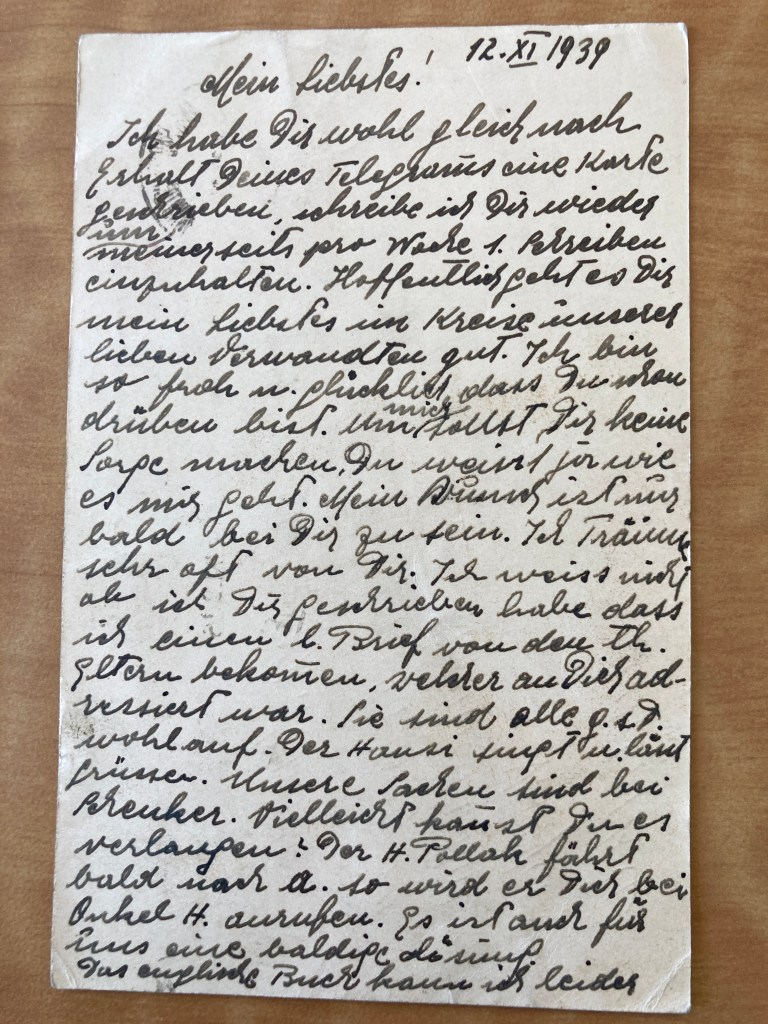 12. XI 1939
Mein Liebstes!
Ich habe Dir wohl gleich nach
Erhalt Deines Telegrams eine Karte
geschrieben, schreibe ich Dir wieder
um
meinerseits pro Woche 1. Schreiben
einzuhalten. Hoffentlich geht es Dir
mein Liebstes im Kreise unserer
lieben Verwandten gut. Ich bin
so froh u. glücklich, dass Du schon
drüben bist. Um mich sollst Dir keine
Sorge machen, Du weisst ja wie
es mir geht. Mein Wunsch ist nur
bald bei Dir zu sein. Ich träume
sehr oft von Dir. Ich weiss nicht
ob ich Dir geschrieben habe dass
ich einen l. Brief von den th.
Eltern bekomen, welcher an Dich ad-
ressiert war. Sie sind alle g. s. D.
wohlauf. Der Hansi singt u. lässt
grüssen. Unsere Sachen sind bei
Schenker. Vielleicht kannst Du es
verlangen? Der H. Pollak fährt
bald nach A. so wird er Dich bei
Onkel H. anrufen. Es ist auch für
uns eine baldige Lösung.
Das englische Buch kann ich leider